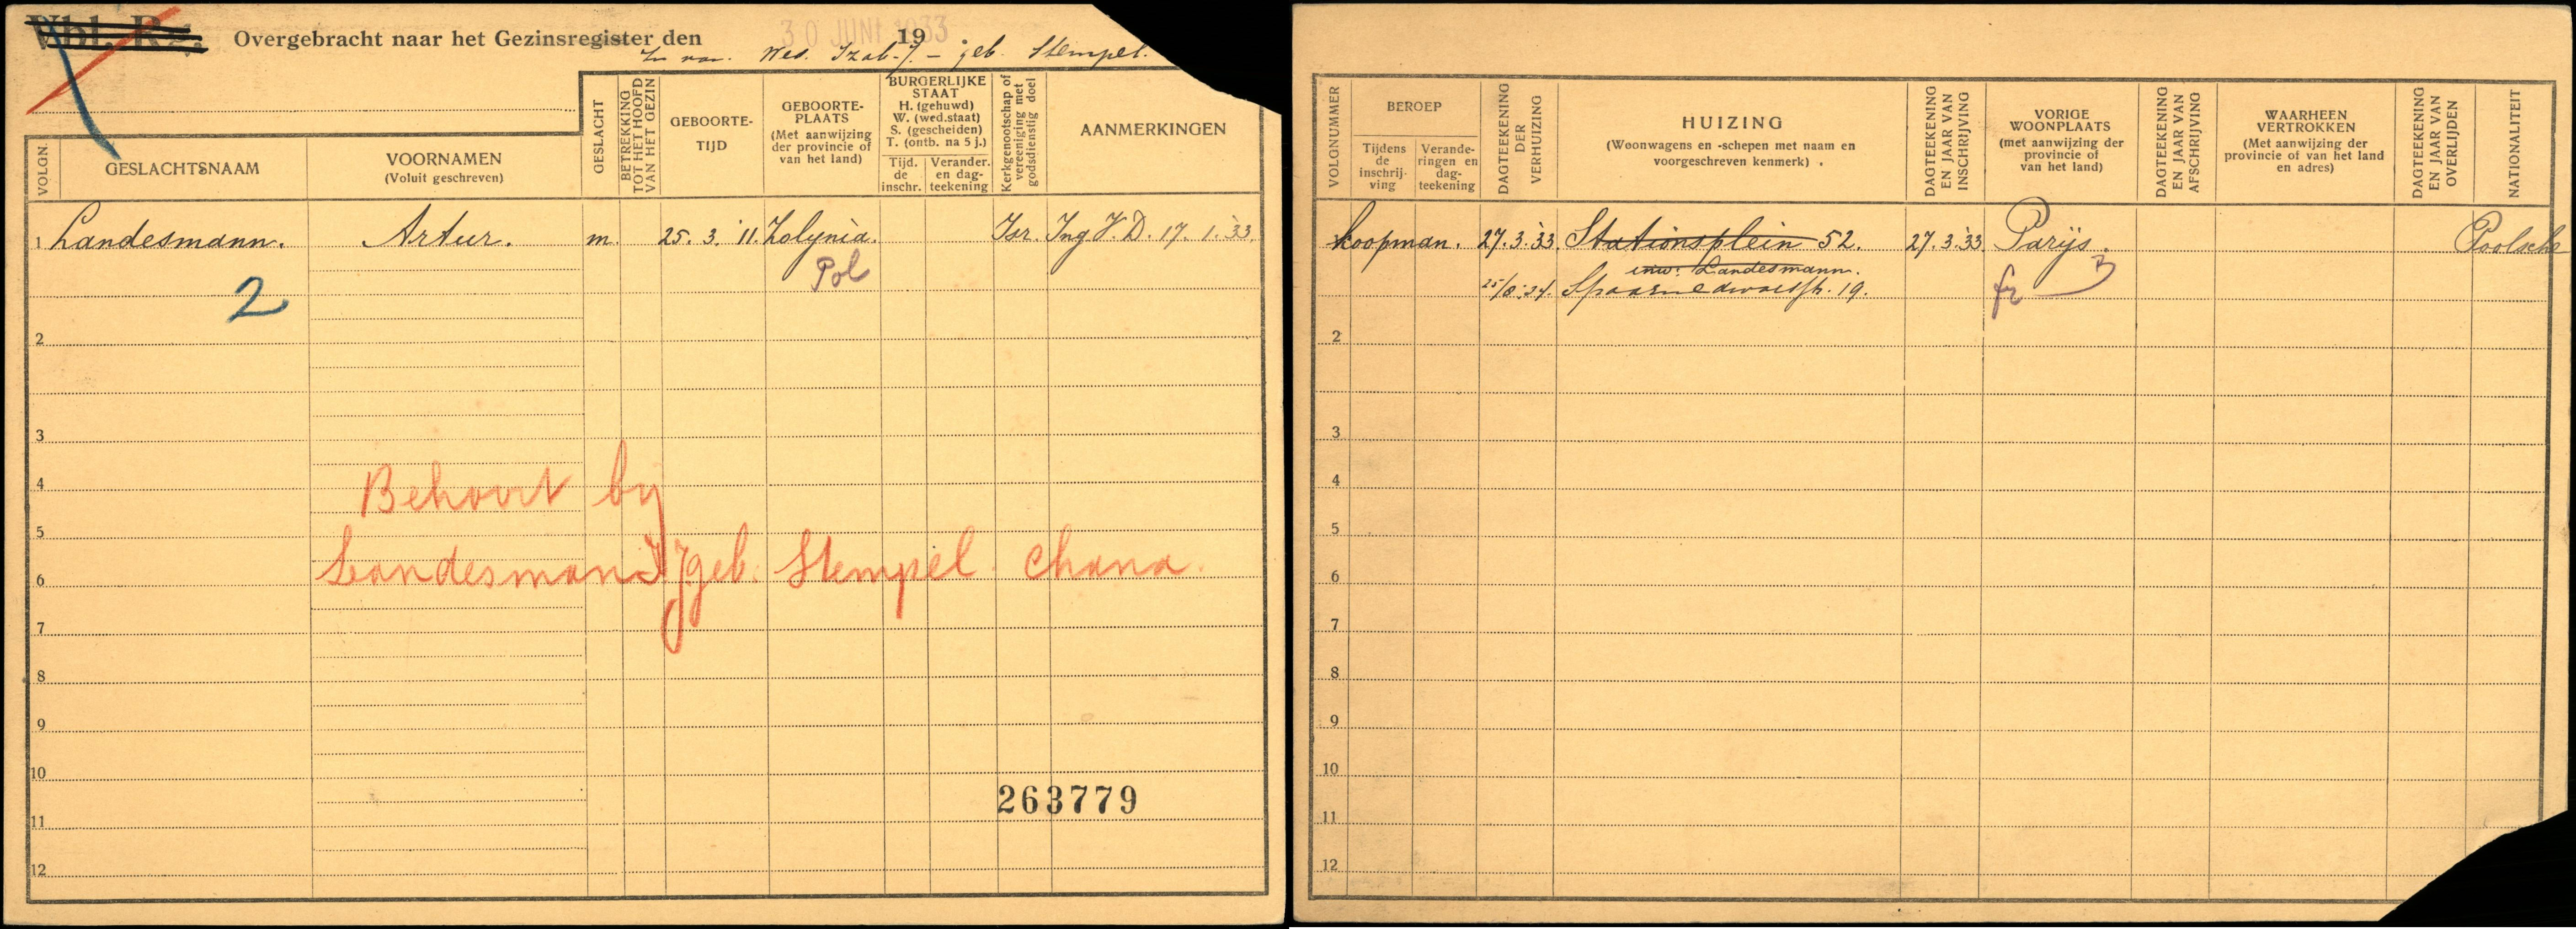 Wbl. Rg.
Overgebracht naar het Gezinsregister den 30 JUNI 1933
Wed. Izab-J. - geb. Stempel.
VOLGN.
GESLACHTSNAAM
VOORNAMEN
(Voluit geschreven)
GESLACHT
BETREKKING TOT HET HOOFD VAN HET GEZIN
GEBOORTE-
TIJD
GEBOORTE-
PLAATS
(Met aanwijzing
der provincie of
van het land)
BURGERLIJKE
STAAT
H. (gehuwd)
W. (wed.staat)
S. (gescheiden)
T. (ontb. na 5 j.)
Tijd.
de
inschr.
Verander.
en dag-
teekening
Kerkgenootschap of
vereeniging met
godsdienstig doel
AANMERKINGEN
1 Landesmann. Artur. m. 25. 3. '11. Zolynia. Isr. Ing V.D. 17. 1. '33.
Pol
2
2
3
4
Behoort by
5
Landesmann J geb. Stempel. Chana.
6
7
8
9
10
263779
11
12
VOLGNUMMER
BEROEP
Tijdens
de
inschrij-
ving
Verande-
ringen en
dag-
teekening
DAGTEEKENING
DER
VERHUIZING
HUIZING
(Woonwagens en -schepen met naam en
voorgeschreven kenmerk) .
DAGTEEKENING
EN JAAR VAN
INSCHRIJVING
VORIGE
WOONPLAATS
(met aanwijzing der
provincie of
van het land)
DAGTEEKENING
EN JAAR VAN
AFSCHRIJVING
WAARHEEN
VERTROKKEN
(Met aanwijzing der
provincie of van het land
en adres)
DAGTEEKENING
EN JAAR VAN
OVERLIJDEN
NATIONALITEIT
koopman. 27.3.'33 Stationsplein 52. 27.3.'33. Parijs. Poolsche
inw: Landesmann.
25/8.'34. Spaarndwarsstr. 19. fr 3
2
3
4
5
6
7
8
9
10
11
12